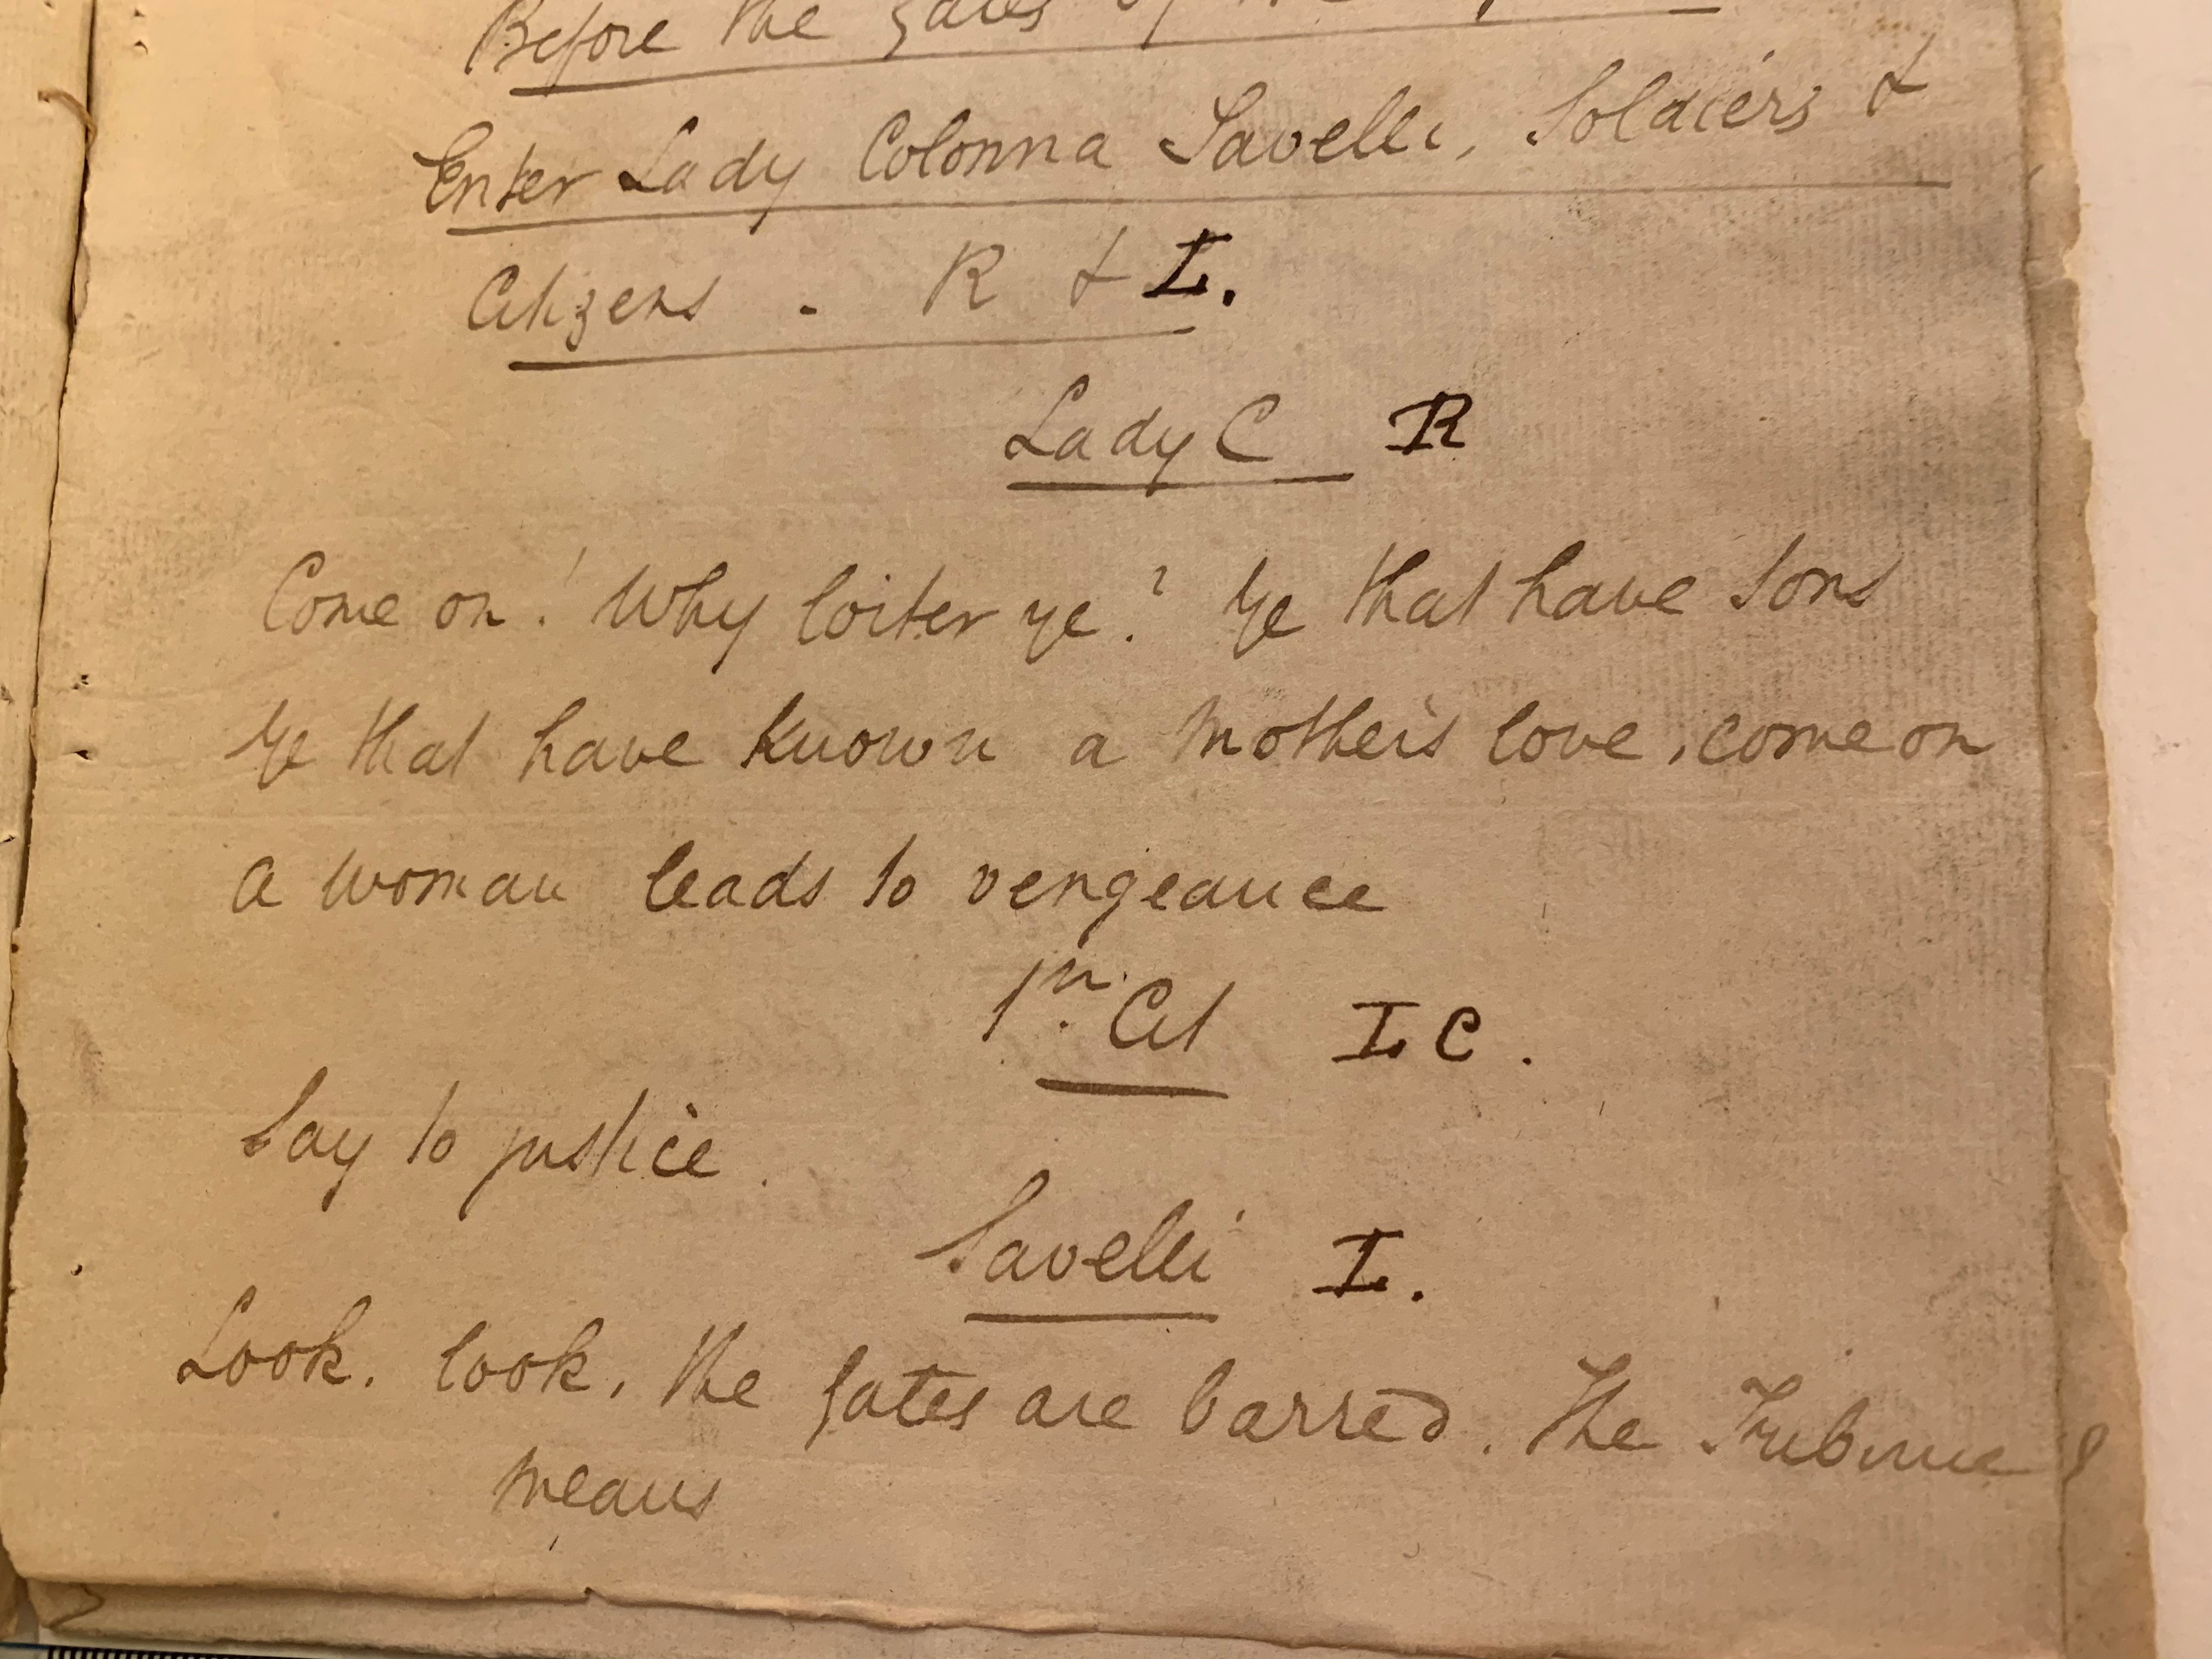 Before the gates of the
Enter Lady Colonna Savelli, Soldiers &
Citizens - R & L.
Lady C R
Come on! Why loiter ye? Ye that have sons
Ye that have known a mother's love, come on
A woman leads to vengeance
1st Cit L C.
Say to justice.
Savelli L.
Look. look, the gates are barred. The Tribune
means